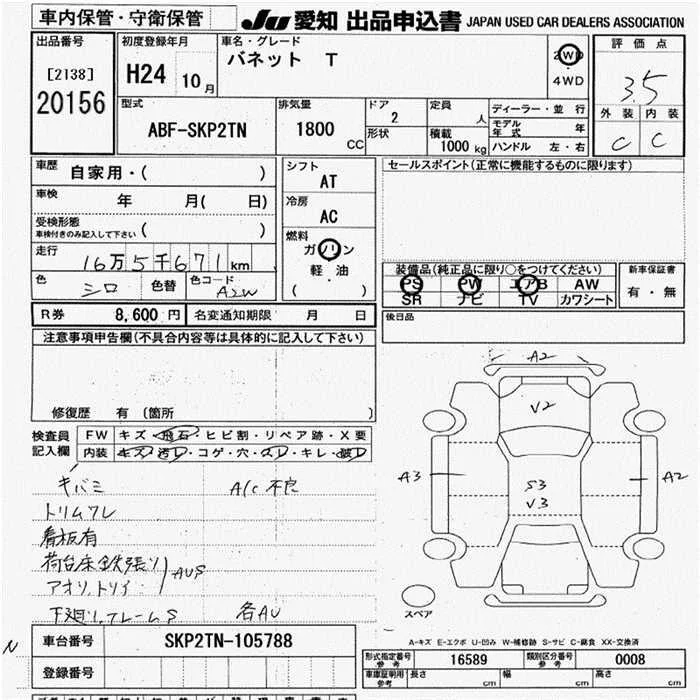 車内保管・守衛保管 JU 愛知 出品申込書 JAPAN USED CAR DEALERS ASSOCIATION
出品番号 初度登録年月 車名・グレード 評価点
[2138] H24 10月 バネット T 2WD 3.5
20156 4WD
型式 排気量 ドア 定員 ディーラー・並行 外装 内装
ABF-SKP2TN 1800 CC 2 人 モデル年式 年 C C
形状 積載 1000 kg ハンドル 左・右
車歴 自家用・( ) シフト AT セールスポイント(正常に機能するものに限ります)
車検 年 月( 日) 冷房 AC
受検形態
車検付きのみ記入して下さい ( ) 燃料
走行 16万5千671km ガソリン
色 シロ 色替 色コード A2W 軽油
( )
装備品(純正品に限り○をつけてください) 新車保証書
PS PW エアB AW 有・無
SR ナビ TV カワシート
R券 8,600円 名変通知期限 月 日 後日品
注意事項申告欄(不具合内容等は具体的に記入して下さい)
修復歴 有 (箇所 )
検査員 FW キズ・飛石・ヒビ割・リペア跡・X要
記入欄 内装 キズ・汚レ・コゲ・穴・スレ・キレ・破レ
キバミ A/C不良
トリムワレ
看板有
荷台床鉄張り
アオリ、トリイ AUS
下廻り、フレームS 各AU
A2
V2
A3 S3 A2
V3
スペア
A-キズ E-エクボ U-凹み W-補修跡 S-サビ C-腐食 XX-交換済
N 車台番号 SKP2TN-105788
登録番号
形式指定番号 参考 16589 類別区分番号 参考 0008
車庫証明用 参考 長さ cm 幅 cm 高さ cm